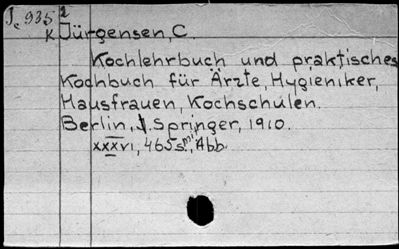 J, 935 2
K Jürgensen, C.
Kochlehrbuch und praktisches
Kochbuch für Ärzte, Hygieniker,
Hausfrauen, Kochschulen.
Berlin, J. Springer, 1910.
xxxvi, 465s. mit Abb.